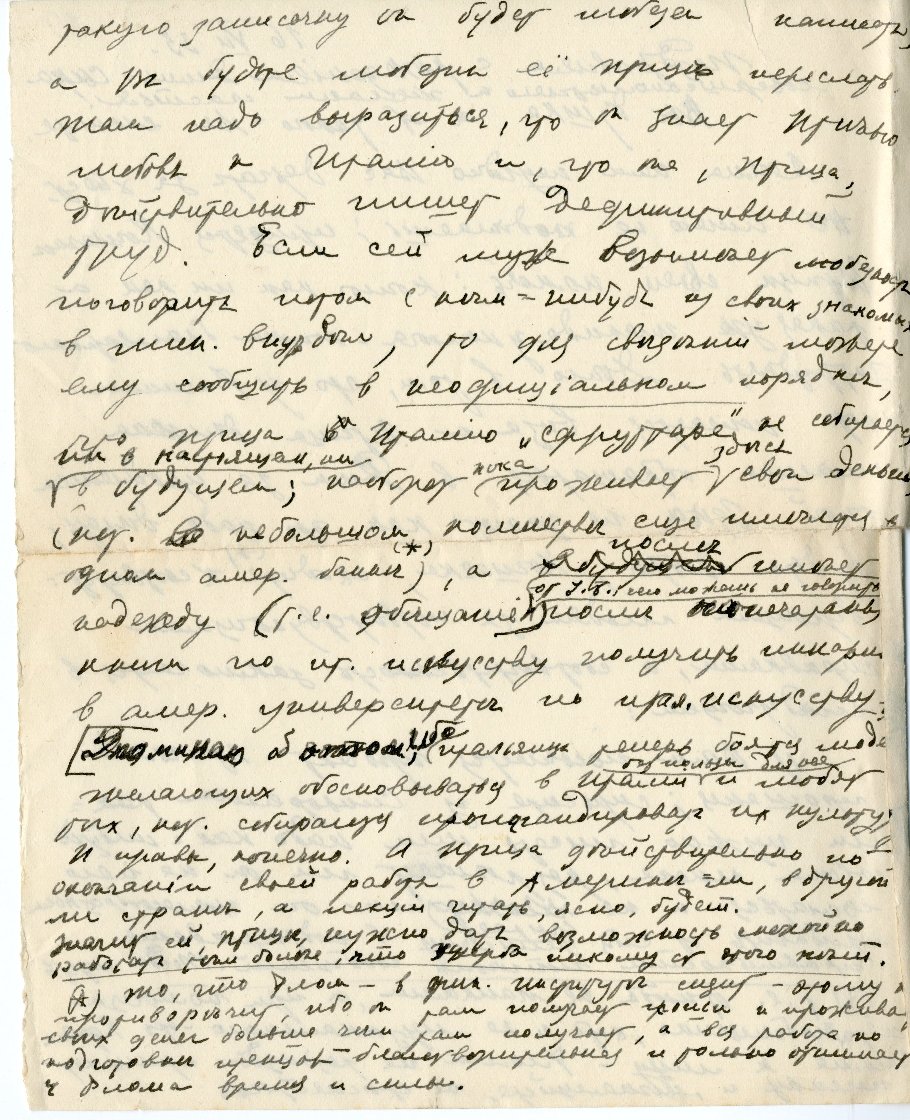 такую записочку он будет любезен написать,
а Вы будьте любезны её Ирице переслать.
Там надо выразиться, что он знает Ирицыну
любовь к Италии и, что же, Ирица,
действительно пишет дефинитивный
труд. Если сей муж возымеет любезность
поговорить потом с кем-нибудь из своих знакомых
в мин. внутр. дел, то для сведений можете
ему сообщить в неофиціальном порядке,
что Ирица в Италию "сфруттаре" не собирается
ни в настоящем, ни
в будущем; наоборот пока проживает здесь свои деньги
(кот. в небольшом количестве еще имеются в
одном амер. банке) (*), а после имеет
надежду (т.е. обещание) после напечатания
книги по ит. искусству получить кафедру
в амер. университете по итал. искусству.
ибо итальянцы теперь боятся людей
желающих обосновываться в Италии и любят
тех, кот. собираются пропагандировать их культуру.
И правы, конечно. А Ирица действительно по
окончаніи своей работы в Америке-ли, в другой
ли стране, а лекціи читать, ясно, будет.
Значит ей, Ирице, нужно дать возможность спокойно
работать тем более, что ущерба никому от этого нет.
(*) то, что Флом – в фин. институте сидит – этому не
противоречит, ибо он там получает гроши и проживает
своих денег больше чем там получает, а вся работа по
подготовки – благотворительная и только отнимает
у Флома время и силы.